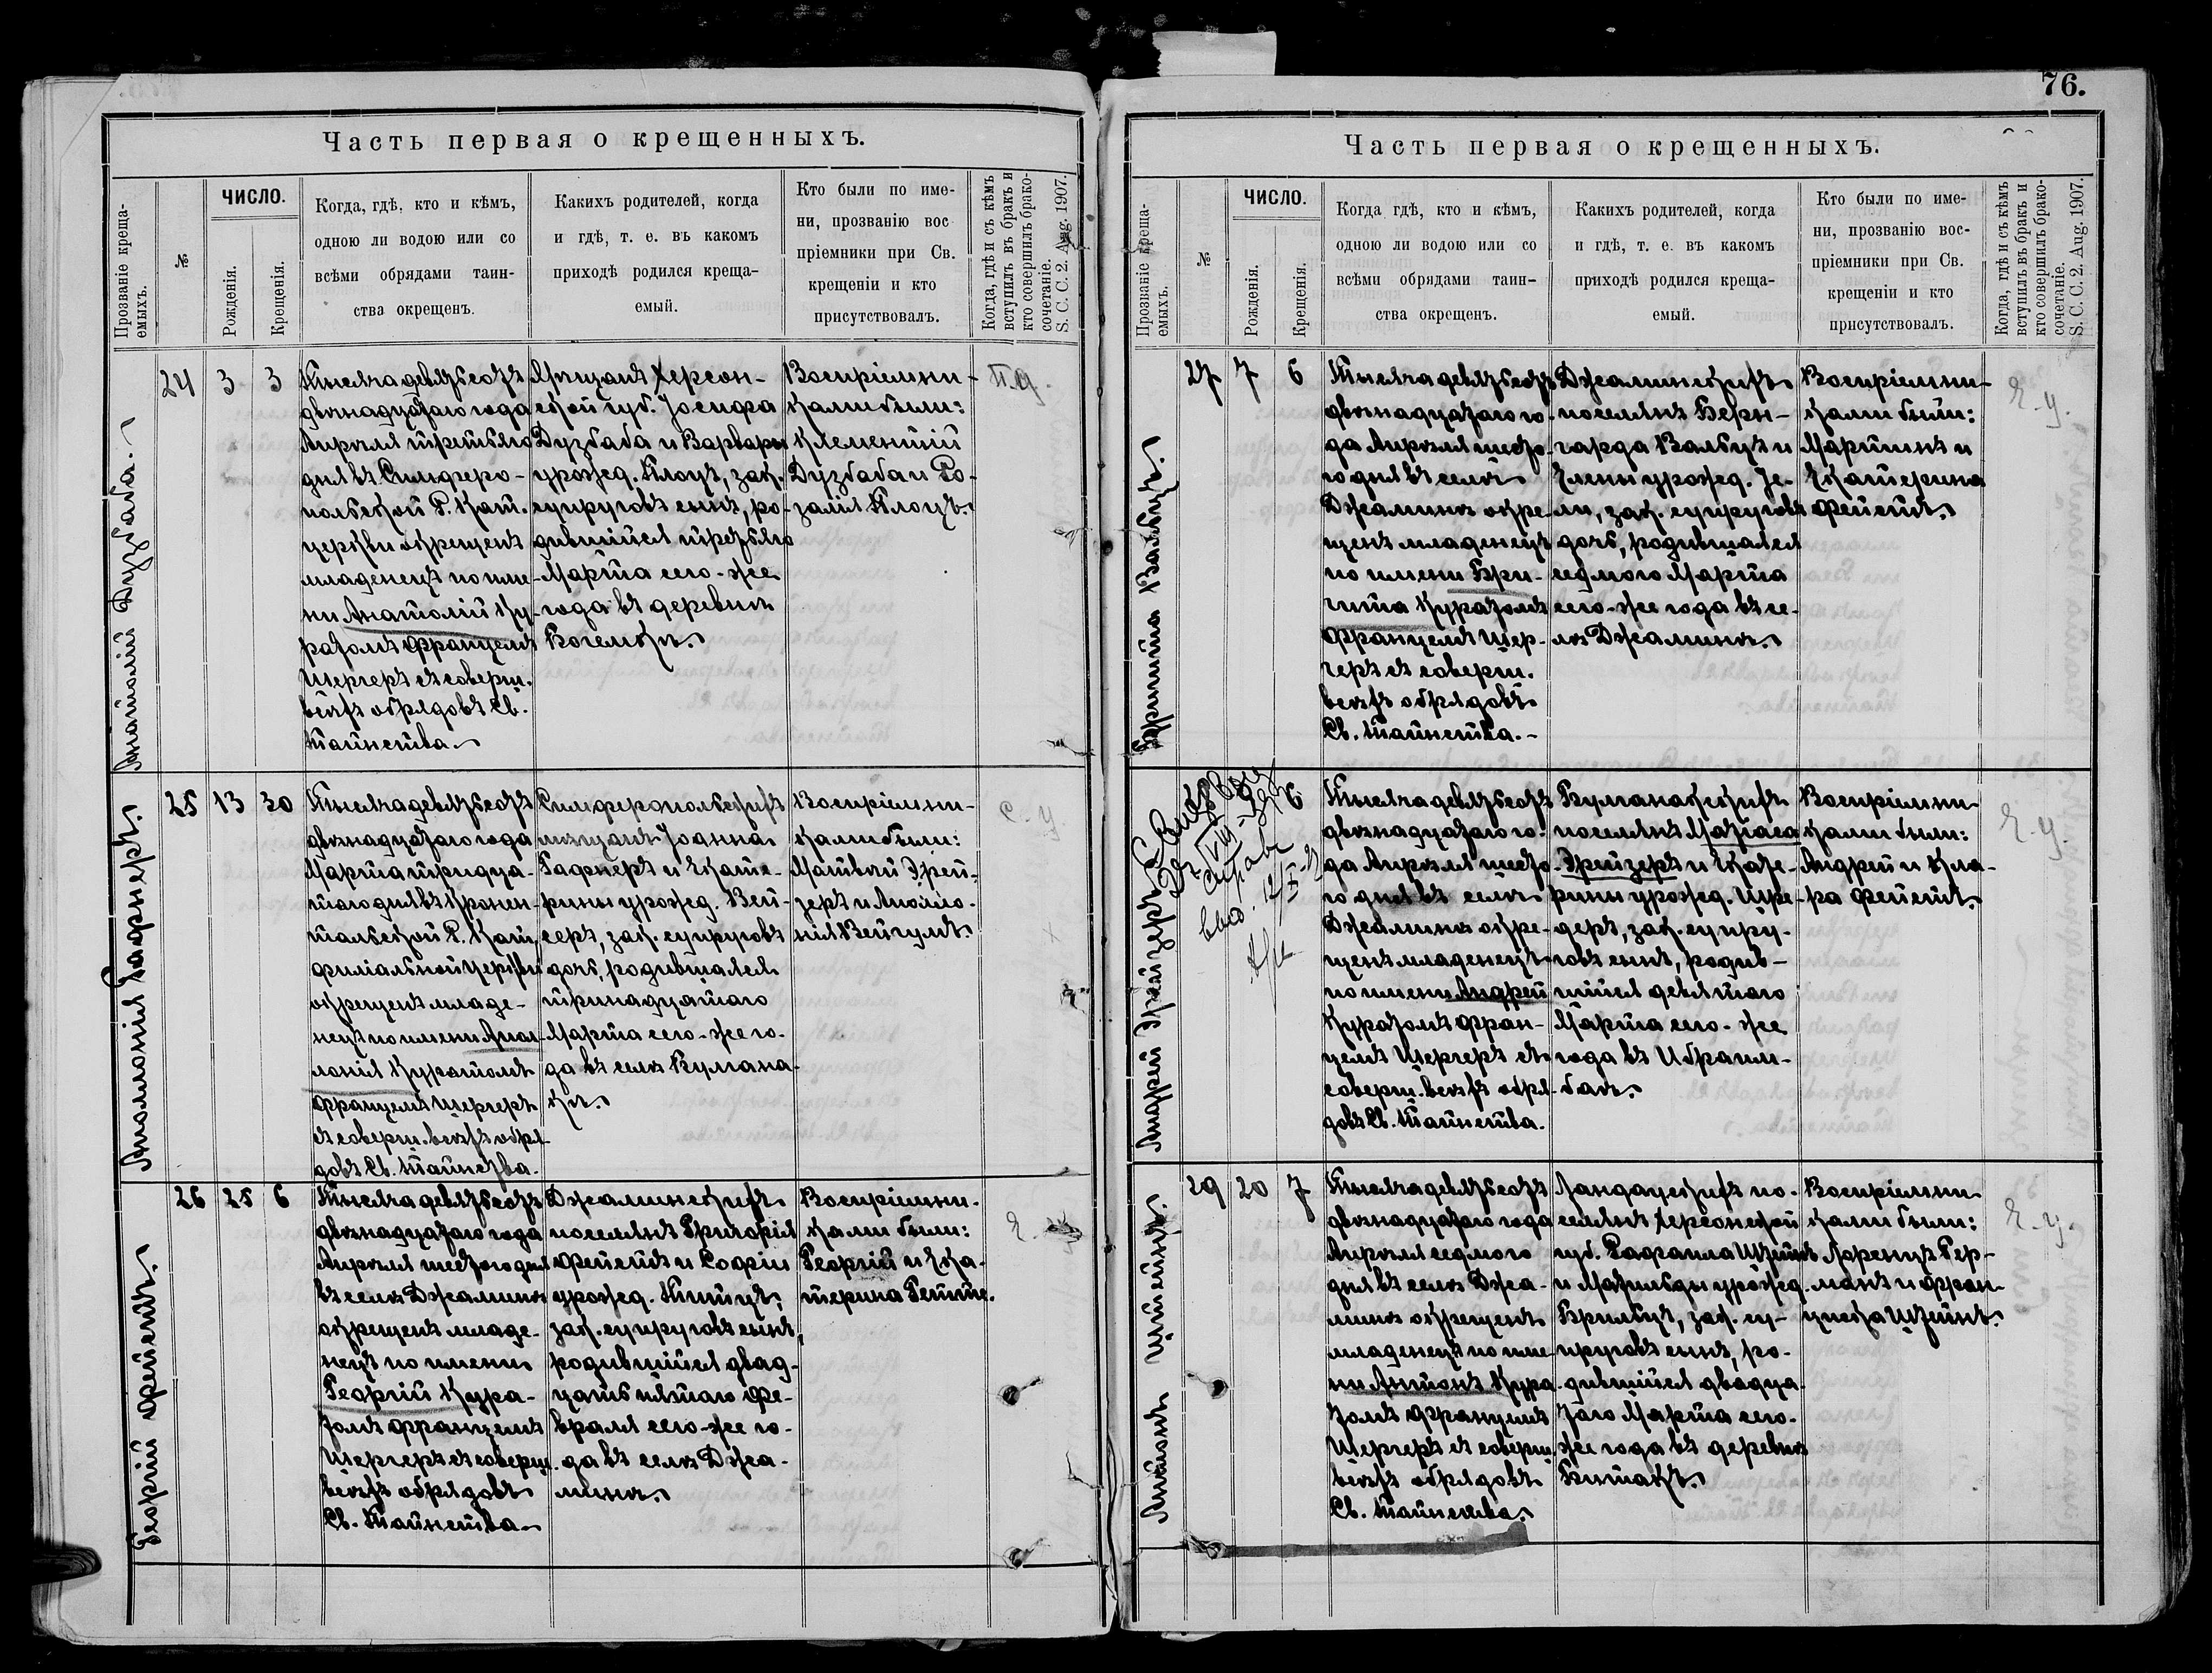 76.
Часть первая о крещенныхъ.
Прозваніе креща-
емыхъ.
№
ЧИСЛО.
Рожденія.
Крещенія.
Когда, гдѣ, кто и кѣмъ,
одною ли водою или со
всѣми обрядами таин-
ства окрещенъ.
Какихъ родителей, когда
и гдѣ, т. е. въ какомъ
приходѣ родился креща-
емый.
Кто были по име-
ни, прозванію вос
пріемники при Св.
крещеніи и кто
присутствовалъ.
Когда, гдѣ и съ кѣмъ
вступилъ въ бракъ и
кто совершилъ брако-
сочетаніе.
S. C. C. 2. Aug. 1907.
Анатолій Дузбаба.
24
3
3
Тысяча девятьсотъ
двѣнадцатаго года
Апрѣля третьяго
дня въ Симферо-
польской Р. Кат.
церкви окрещенъ
младенецъ по име-
ни Анатолій Ку-
ратомъ Францемъ
Шергеръ съ соверш.
всѣхъ обрядовъ Св.
Таинства.
Мѣщанъ Херсон-
ской губ. Іосифа
Дузбаба и Варвары
урожд. Клоцъ, зак.
супруговъ сынъ, ро-
дившійся третьяго
Марта сего-же
года въ деревнѣ
Богемкѣ.
Воспріемни-
ками были:
Клементій
Дузбаба и Ро-
залія Клоцъ.
Аполлонія Гафнеръ.
25
13
30
Тысяча девятьсотъ
двѣнадцатаго года
Марта тридца-
таго дня въ Кронен-
тальской Р. Кат.
филіальной церкви
окрещенъ младе-
нецъ по имени Апол-
лонія Куратомъ
Францемъ Шергеръ
съ соверш. всѣхъ обря-
довъ Св. Таинства.
Симферопольскихъ
мѣщанъ Іоанна
Гафнеръ и Екате-
рины урожд. Вей-
серъ, зак. супруговъ
дочь, родившаяся
тринадцатаго
Марта сего-же го-
да въ селѣ Булгана-
кѣ.
Воспріемни-
ками были:
Матвѣй Эрей-
зеръ и Аполло-
нія Вейгумъ.
Георгій Фейстъ.
26
25
6
Тысяча девятьсотъ
двѣнадцатаго года
Апрѣля шестого дня
въ селѣ Джаминѣ
окрещенъ младе-
нецъ по имени
Георгій Кура-
томъ Францемъ
Шергеръ съ соверш.
всѣхъ обрядовъ
Св. Таинства.
Джаминскихъ
поселянъ Григорія
Фейстъ и Софіи
урожд.
зак. супруговъ сынъ,
родившійся двад-
цать пятаго Фе-
враля сего-же го-
да въ селѣ Джа-
минѣ.
Воспріемни-
ками были:
Георгій и Ека-
терина
Часть первая о крещенныхъ.
Прозваніе креща-
емыхъ.
№
ЧИСЛО.
Рожденія.
Крещенія.
Когда гдѣ, кто и кѣмъ,
одною ли водою или со
всѣми обрядами таин-
ства окрещенъ.
Какихъ родителей, когда
и гдѣ, т. е. въ какомъ
приходѣ родился креща-
емый.
Кто были по име-
ни, прозванію вос-
пріемники при Св.
крещеніи и кто
присутствовалъ.
Когда, гдѣ и съ кѣмъ
вступилъ въ бракъ и
кто совершилъ брако-
сочетаніе.
S. C. C. 2. Aug. 1907.
Бригитта Вальбухъ.
27
7
6
Тысяча девятьсотъ
двѣнадцатаго го-
да Апрѣля шесто-
го дня въ селѣ
Джаминѣ окре-
щенъ младенецъ
по имени Бри-
гитта Куратомъ
Францемъ Шер-
геръ съ соверш.
всѣхъ обрядовъ
Св. Таинства.
Джаминскихъ
поселянъ Берн-
гарда Вальбухъ и
Елены урожд. Іе-
ли, зак. супруговъ
дочь, родившаяся
седмого Марта
сего-же года въ се-
лѣ Джаминѣ.
Воспріемни-
ками были:
Мартинъ и
Екатерина
Фейстъ.
Андрей Эрейзеръ
6
Тысяча девятьсотъ
двѣнадцатаго го-
да Апрѣля шесто-
го дня въ селѣ
Джаминѣ окре-
щенъ младенецъ
по имени Андрей
Куратомъ Фран-
цемъ Шергеръ съ
соверш. всѣхъ обря-
довъ Св. Таинства.
Булганакскихъ
поселянъ Матіаса
Эрейзеръ и Екате-
рины урожд. Шре-
деръ, зак. супру-
говъ сынъ, родив-
шійся девятаго
Марта сего-же
года въ Ибраим-
баѣ.
Воспріемни-
ками были:
Андрей и Кла-
ра Фейстъ.
Антонъ Штейнъ.
29
20
7
Тысяча девятьсотъ
двѣнадцатаго года
Апрѣля седмого
дня въ селѣ Джа-
минѣ окрещенъ
младенецъ по име-
ни Антонъ Кура-
томъ Францемъ
Шергеръ съ соверш.
всѣхъ обрядовъ
Св. Таинства.
Ландаускихъ по-
селянъ Херсонской
губ. Рафаила Штейнъ
и Матильды урожд.
зак. су-
пруговъ сынъ, ро-
дившійся двадца-
таго Марта сего-
же года въ деревнѣ
Битакъ.
Воспріемни-
ками были:
Лоренцъ Гер-
манъ и Фран-
циска Штейнъ.